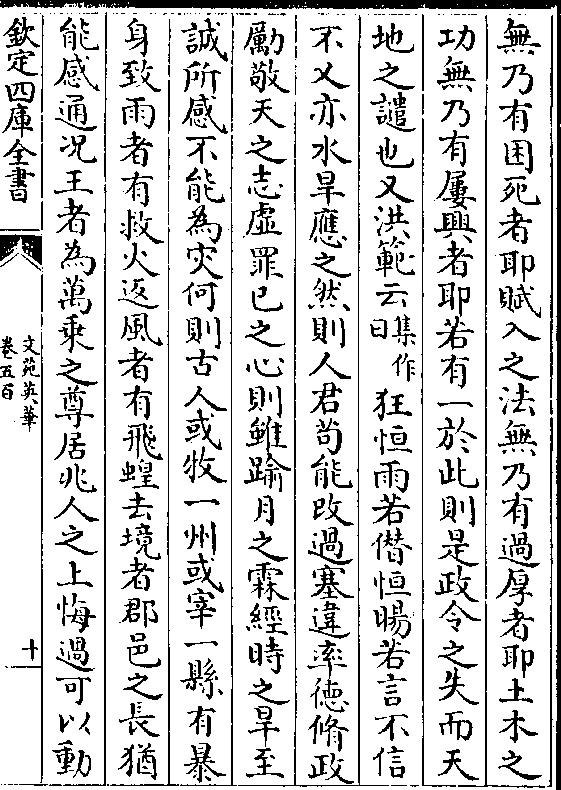 無乃有困死者耶賦入之法無乃有過厚者耶土木之
功無乃有屢興者耶若有一於此則是政令之失而天
地之譴也又洪範云集作曰狂恒雨若僭恒暘若言不信
不乂亦水旱應之然則人君苟能改過塞違率徳脩政
勵敬天之志虚罪已之心則雖踰月之霖經時之旱至
誠所感不能為灾何則古人或牧一州或宰一縣有暴
身致雨者有救火返風者有飛蝗去境者郡邑之長猶
能感通况王者為萬乘之尊居兆人之上悔過可以動
欽定四庫全書
文苑英華
卷五百
十